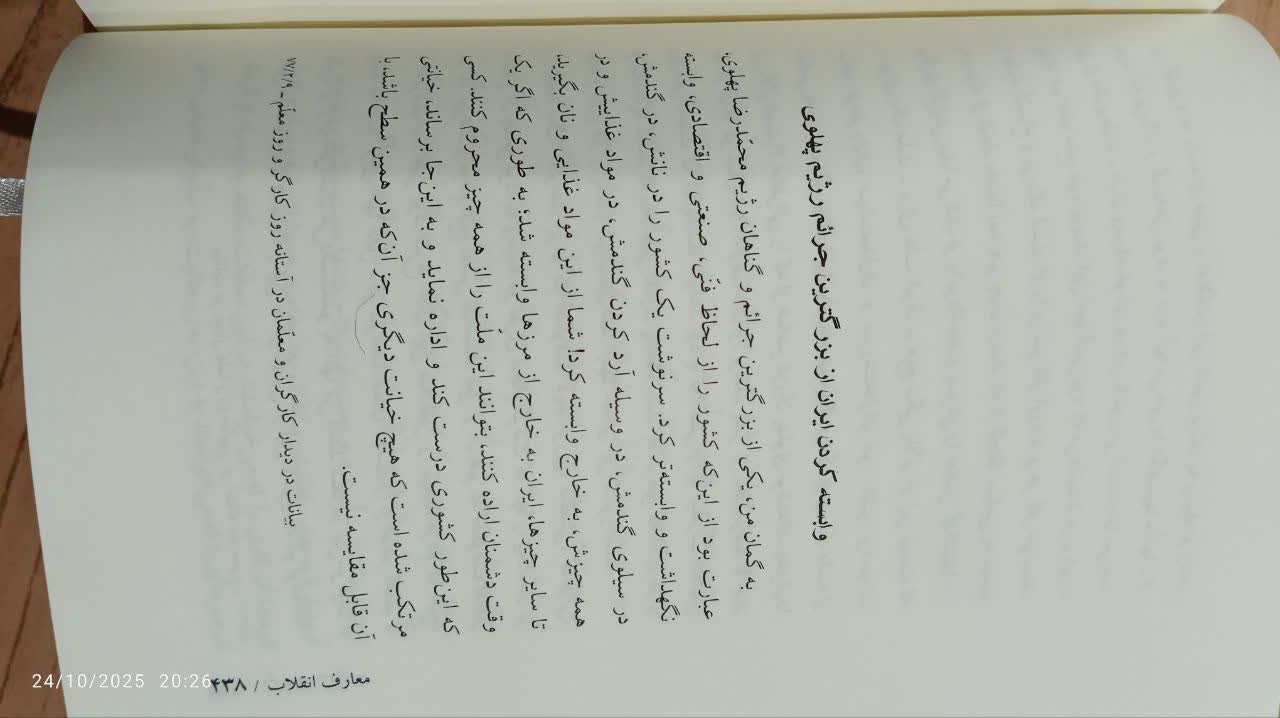 وابسته کردن ایران از بزرگترین جرائم رژیم پهلوی
به گمان من، یکی از بزرگترین جرائم و گناهان رژیم محمّدرضا پهلوی،
عبارت بود از این‌که کشور را از لحاظ فنّی، صنعتی و اقتصادی، وابسته
نگهداشت و وابسته‌تر کرد. سرنوشت یک کشور را در نانش، در گندمش،
در سیلوی گندمش، در وسیله آرد کردن گندمش، در مواد غذاییش و در
همه چیزش، به خارج وابسته کرد! شما از این مواد غذایی و نان بگیرید،
تا سایر چیزها، ایران به خارج از مرزها وابسته شد؛ به طوری که اگر یک
وقت دشمنان اراده کنند، بتوانند این ملّت را از همه چیز محروم کنند. کسی
که این‌طور کشوری درست کند و اداره نماید و به این جا برساند، خیانتی
مرتکب شده است که هیچ خیانت دیگری جز آن‌که در همین سطح باشد، با
آن قابل مقایسه نیست.
بیانات در دیدار کارگران و معلّمان در آستانه روز کارگر و روز معلّم ـ ۷۷/۲/۹
معارف انقلاب / ۴۳۸
24/10/2025 20:26